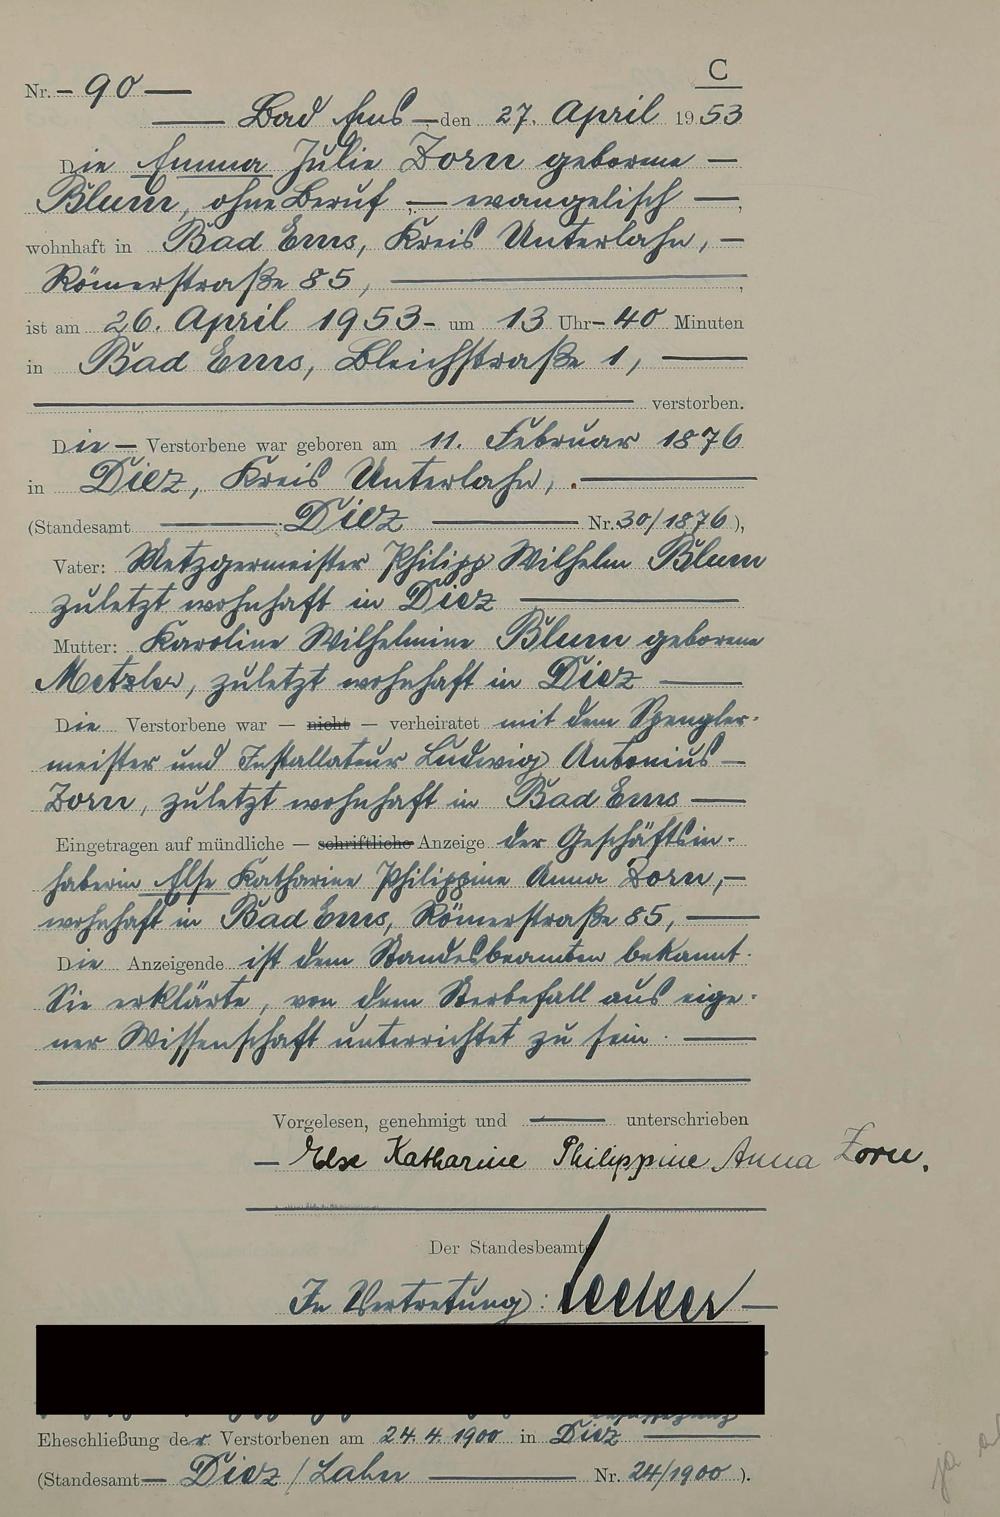 C
Nr. – 90 —
— Bad Ems – den 27. April 1953
Die Emma Julie Zorn geborene —
Blum, ohne Beruf, — evangelisch —,
wohnhaft in Bad Ems, Kreis Unterlahn, —
Römerstraße 85, —,
ist am 26. April 1953 – um 13 Uhr – 40 Minuten
in Bad Ems, Bleichstraße 1, —
— verstorben.
Die — Verstorbene war geboren am 11. Februar 1876
in Diez, Kreis Unterlahn, . —
(Standesamt — Diez — Nr. 30/1876 ),
Vater: Metzgermeister Philipp Wilhelm Blum
zuletzt wohnhaft in Diez —
Mutter: Karoline Wilhelmine Blum geborene
Metzler, zuletzt wohnhaft in Diez —
Die Verstorbene war — nicht — verheiratet mit dem Spengler-
meister und Installateur Ludwig Antonius —
Zorn, zuletzt wohnhaft in Bad Ems —
Eingetragen auf mündliche — schriftliche Anzeige der Geschäftsin-
haberin Else Katharine Philippine Anna Zorn, —
wohnhaft in Bad Ems, Römerstraße 85, —
Die Anzeigende ist dem Standesbeamten bekannt.
Sie erklärte, von dem Sterbefall aus eige-
ner Wissenschaft unterrichtet zu sein. —
Vorgelesen, genehmigt und — unterschrieben
— Else Katharine Philippine Anna Zorn.
Der Standesbeamte
In Vertretung: —
Eheschließung der Verstorbenen am 24.4.1900 in Diez —
(Standesamt — Diez / Lahn — Nr. 24/1900 ).
ja